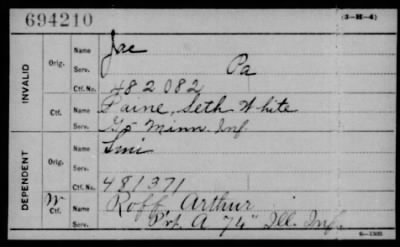 694210
(3-H-4)
INVALID
Orig.
Name
Serv. Pa
Ctf. No. 482082
Ctf.
Name Paine, Seth White
Serv. Minn. Inf.
DEPENDENT
Orig.
Name
Serv.
Ctf. No. 481371
W Ctf.
Name Roff Arthur
Serv. Pvt. A 74" Ill. Inf.
6-1303